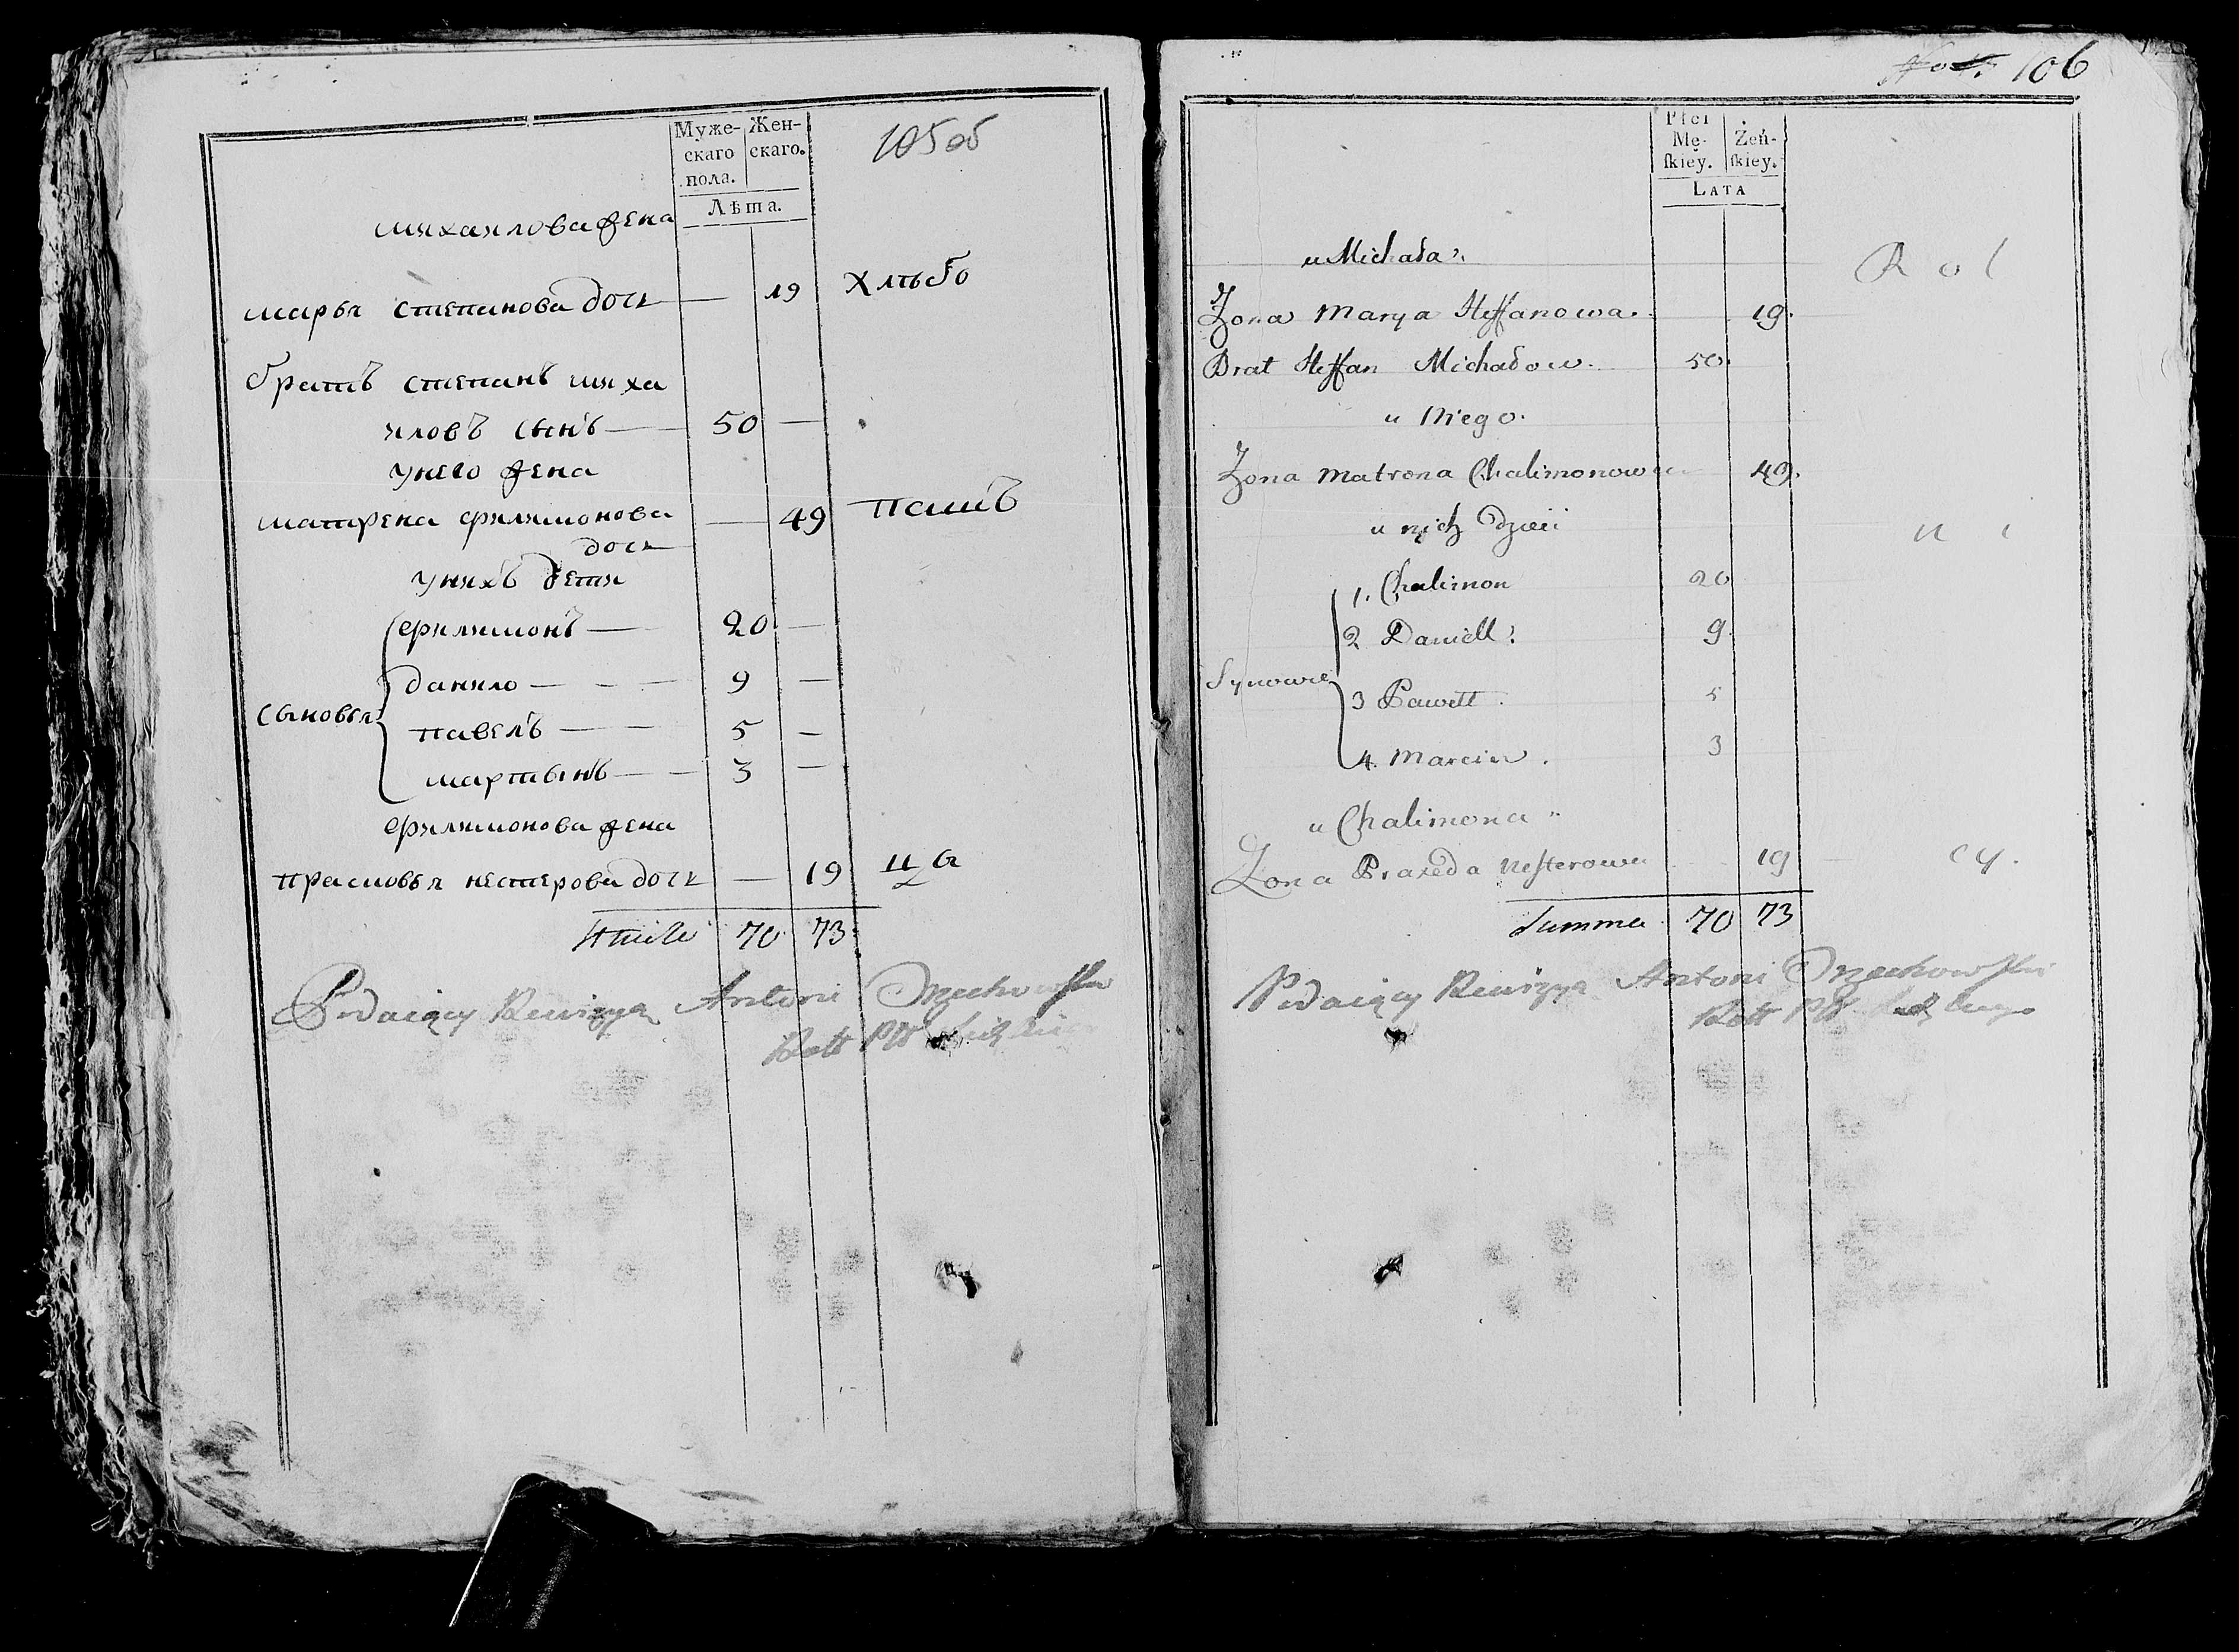 105 об
Муже-
скаго
пола.
Жен-
скаго.
Лѣта.
михаилова жена
марья степанова дочь — 19 Хлѣбо
братъ степанъ миха
иловъ сынъ — 50 —
унего жена
матрена филимонова — 49 пашъ
дочь
унихъ дети
филимонъ — 20 —
данило — 9 —
сыновья
павелъ — 5 —
мартынъ — 3 —
филимонова жена
прасковья нестерова дочь — 19 ца
Итого 70 73
Podaiący Rewizyą Antoni Orzechowski
Rott Ptt
106
Płci
Mę-
ſkiey.
Żeń-
ſkiey.
LATA
u Michała
Rol
Żona Marya Steffanowa. 19.
Brat Steffan Michałow. 50.
u Niego.
Żona Matrona Chalimonowa 49.
u nich Dzieci
n i
1. Chalimon 20
2 Daniell 9
Synowie
3 Pawełł 5
4. Marcin. 3
u Chalimona
Żona Praxeda Nesterowa 19 cy.
Summa 70 73
Podaiący Rewizyą Antoni Orzechowski
Rott Ptt